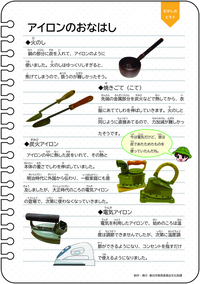 アイロンのおはなし
◆火のし
鍋の部分に炭を入れて、アイロンのように
使いました。火のしはゆっくりしすぎると、
焦げてしまうので、扱うのが難しかったそう。
◆焼きごて（こて）
先端の金属部分を炭火などで熱してから、衣
服にあててしわを伸ばしていきます。火のしと
同じように直接あてるので、力加減が難しかっ
たそうです。
◆炭火アイロン
アイロンの中に熱した炭をいれて、その熱と
本体の重さでしわを伸ばしていました。
明治時代に外国から伝わり、一般家庭にも普
及しましたが、大正時代のころの電気アイロン
の登場で、次第に使わなくなっていきました。
◆電気アイロン
電気を利用したアイロンで、始めのころは温
度は調節できませんでしたが、次第に温度調
節ができるようになり、コンセントを指すだけ
で使えるようになりました。